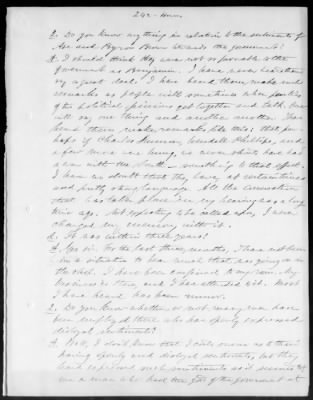 242 -
Q. Do you know any thing in relation to the sentiments of
Asa and Byron Brown towards the government?
A. I should think they were not so favorable to the
government as Benjamin. I have never heard them
say a great deal. I have heard them make such
remarks as people will sometimes when parties
of the political opinions get together and talk. One
will say one thing and another another. I have
heard them make remarks like this: that per-
haps if Charles Sumner, Wendell Phillips, and
a few more were hung, we never should have had
a war with the South - something to that effect.
I have no doubt that they have, at certain times
used pretty strong language. All the conversation
that has taken place in my hearing was a long
time ago. Not expecting to be called upon, I never
charged my memory with it.
Q. It was within three years?
A. Yes sir. For the last three months, I have not been
in a situation to hear much that was going on in
the shed. I have been confined to my room. My
business is there, and I have attended to it. Most
I have heard has been rumor.
Q. Do you know whether or not many men have
been employed there who have openly expressed
disloyal sentiments?
A. Well, I don't know that I could name as to their
having openly and disloyal sentiments, but they
have expressed such sentiments as it seems to
me a man who had the good of the government at